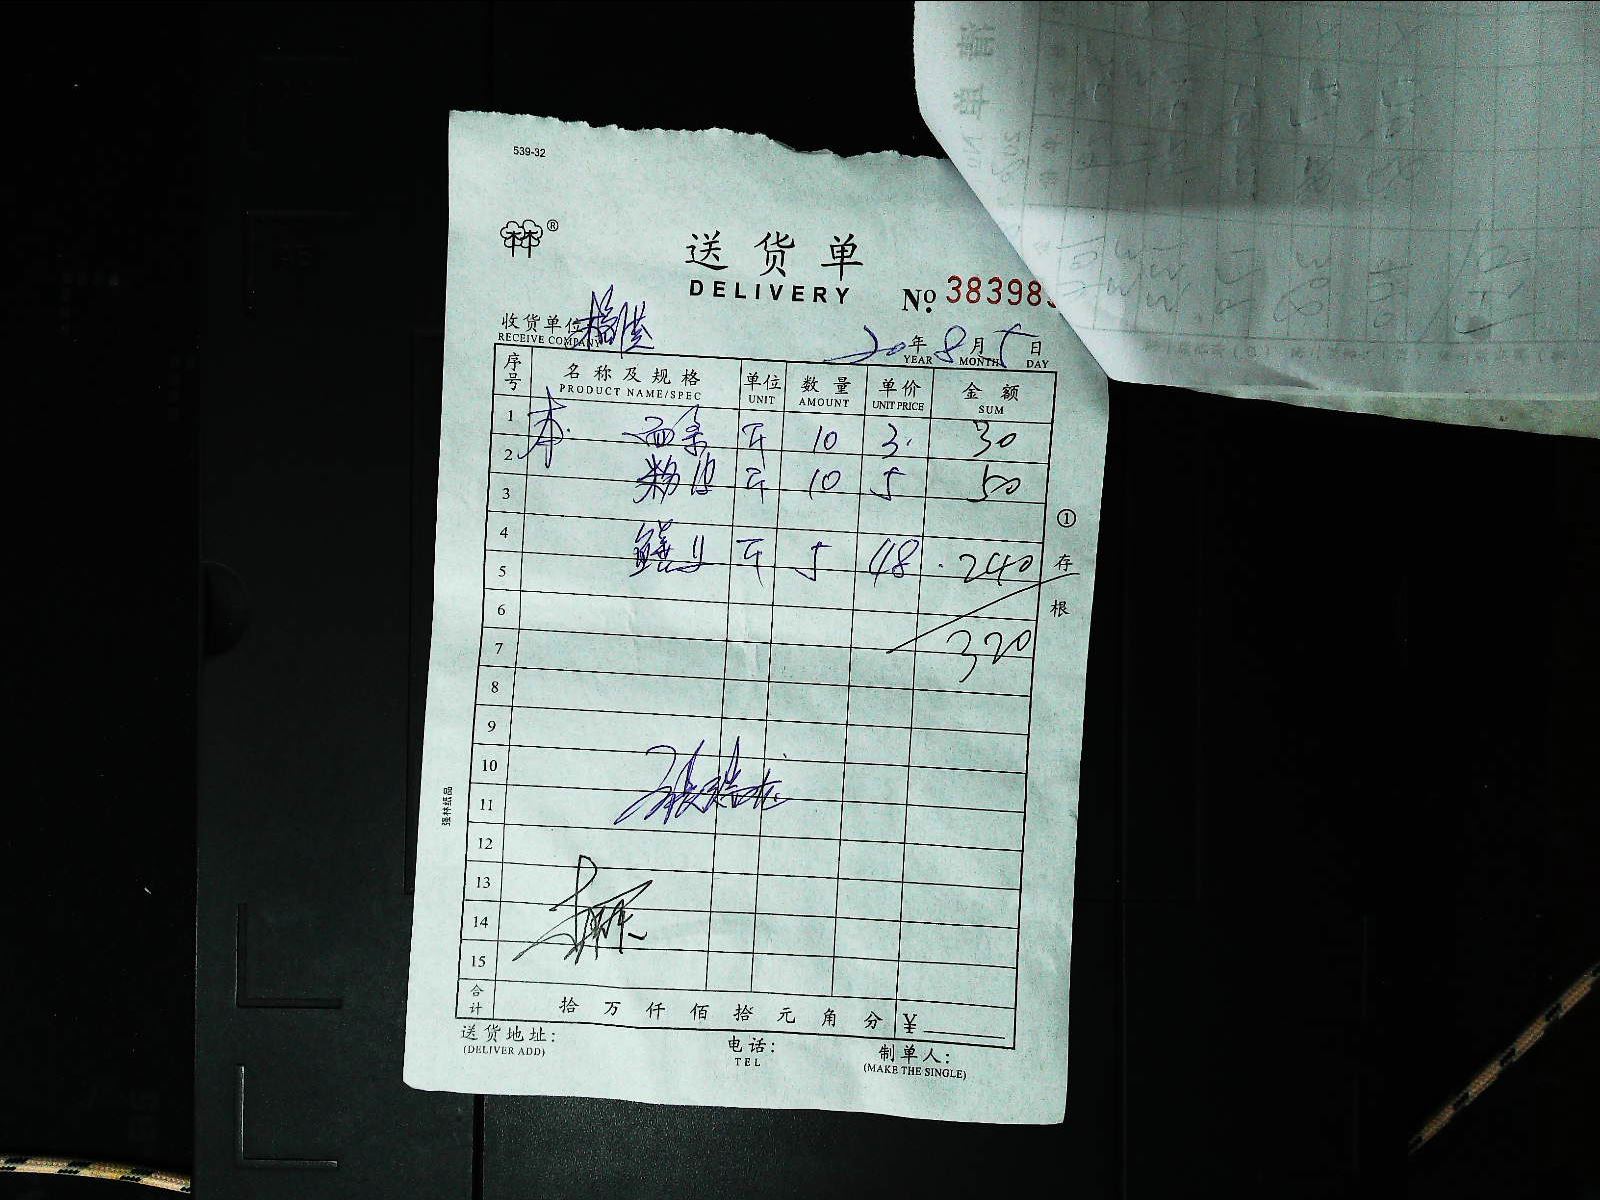 539-32
林®
送货单
DELIVERY
№ 38398
收货单位
RECEIVE COMPANY
20年8月5日
YEAR MONTH DAY
序号 名称及规格 单位 数量 单价 金额
PRODUCT NAME/SPEC UNIT AMOUNT UNIT PRICE SUM
1 本 面条 斤 10 3. 30
2 粉皮 斤 10 5 50
3
4 斤 5 48. 240
5
6 320
7
8
9
10
11
12
13
14
15
合计 拾 万 仟 佰 拾 元 角 分 ¥
送货地址: 电话: 制单人:
(DELIVER ADD) TEL (MAKE THE SINGLE)
①存根
强林纸品